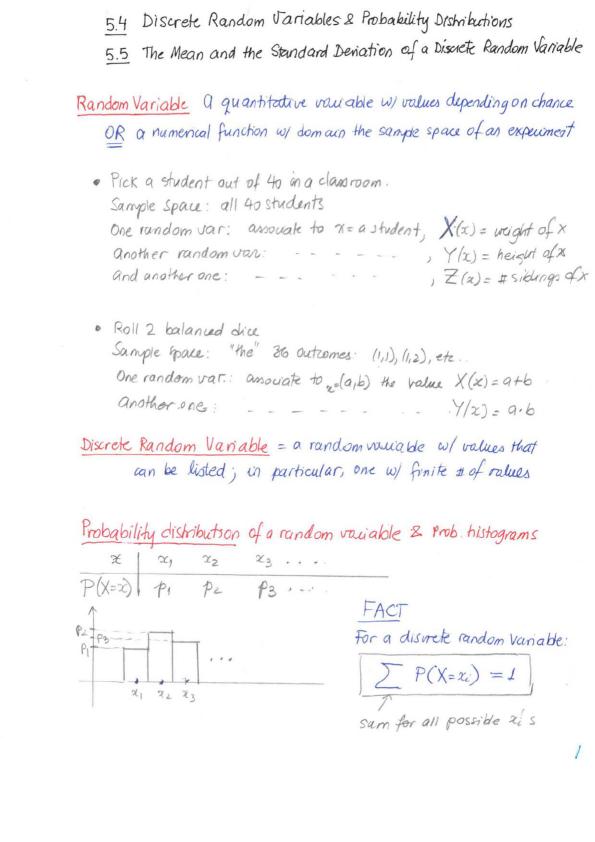 5.4 Discrete Random Variables & Probability Distributions
5.5 The Mean and the Standard Deviation of a Discrete Random Variable
Random Variable A quantitative variable w/ values depending on chance
OR a numerical function w/ domain the sample space of an experiment
• Pick a student out of 40 in a classroom.
Sample Space: all 40 students
One random var: associate to x = a student, X(x) = weight of x
Another random var: - - - - - - , Y(x) = height of x
And another one: - - - - - - , Z(x) = # siblings of x
• Roll 2 balanced dice
Sample Space: "the" 36 outcomes: (1,1), (1,2), etc..
One random var.: associate to x=(a,b) the value X(x) = a+b
Another one: - - - - - - .. Y(x) = a·b
Discrete Random Variable = a random variable w/ values that
can be listed; in particular, one w/ finite # of values
Probability distribution of a random variable & Prob. histograms
x x₁ x₂ x₃ ....
P(X=x) p₁ p₂ p₃ ....
p₂
p₃
p₁
...
x₁ x₂ x₃
FACT
For a discrete random variable:
∑ P(X=xᵢ) = 1
sum for all possible xᵢ's
1